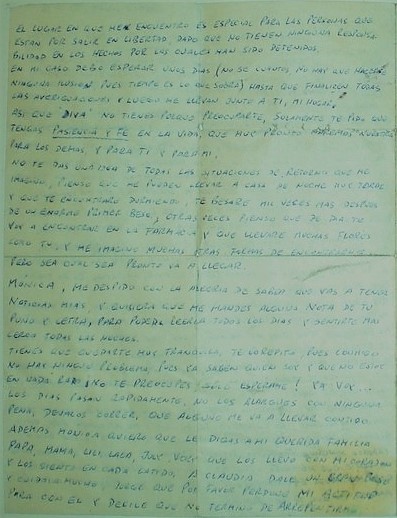 EL LUGAR EN QUE ME ENCUENTRO ES ESPECIAL PARA LAS PERSONAS QUE
ESTAN POR SALIR EN LIBERTAD DADO QUE NO TIENEN NINGUNA RESPONSA
BILIDAD EN LOS HECHOS POR LAS CUALES HAN SIDO DETENIDOS.
EN MI CASO DEBO ESPERAR UNOS DIAS (NO SE CUANTOS NO HAY QUE HACERSE
NINGUNA ILUSION PUES TIEMPO ES LO QUE SOBRA) HASTA QUE FINALICEN TODAS
LAS AVERIGUACIONES Y LUEGO ME LLEVAN JUNTO A TI, MI MUJER.
ASI QUE "DIVA" NO TIENES PORQUE PREOCUPARTE, SOLAMENTE TE PIDO QUE
TENGAS PASIENCIA Y FE EN LA VIDA, QUE MUY PRONTO
PARA LOS DEMAS, Y PARA TI Y PARA MI.
NO TE DAS UNA IDEA DE TODAS LAS SITUACIONES DE RETORNO QUE ME
IMAGINO, PIENSO QUE ME PUEDEN LLEVAR A CASA DE NOCHE MUY TARDE
Y QUE TE ENCONTRARE DURMIENDO, TE BESARE MIL VECES MAS DESPUES
DE UN ENORME PRIMER BESO, OTRAS VECES PIENSO QUE DE DIA TE
VOY A ENCONTRAR EN LA FARMACIA Y QUE LLEVARE MUCHAS FLORES
COMO TU, Y ME IMAGINO MUCHAS OTRAS FORMAS DE
PERO SEA CUAL SEA PRONTO VA A LLEGAR.
MONICA, ME DESPIDO CON LA ALEGRIA DE SABER QUE VAS A TENER
NOTICIAS MIAS, Y QUISIERA QUE ME MANDES ALGUNA NOTA DE TU
PUÑO Y LETRA, PARA PODER LEERLA TODOS LOS DIAS Y SENTIRTE MAS
CERCA TODAS LAS NOCHES.
TIENES QUE QUEDARTE MUY TRANQUILA, TE LO REPITO, PUES CONMIGO
NO HAY NINGUN PROBLEMA, PUES YA SABEN QUIEN SOY Y QUE NO ESTOY
EN NADA RARO, NO TE PREOCUPES ESPERAME! YA VOY...
LOS DIAS PASAN RAPIDAMENTE, NO LOS ALARGUES CON NINGUNA
PENA, DEJALOS CORRER, QUE ALGUNO ME VA A LLEVAR CONTIGO.
ADEMAS MONICA QUIERO QUE LE DIGAS A MI QUERIDA FAMILIA
PAPA, MAMA, LILI, LALA, QUE LOS LLEVO CON MI
Y LOS SIENTO EN CADA LATIDO, A CLAUDIO DALE UN GRAN BESO
Y CUIDALO MUCHO, QUE POR FAVOR PERDONE MI ACTITUD
PARA CON EL Y DECILE QUE NO TERMINO DE ARREPENTIRME